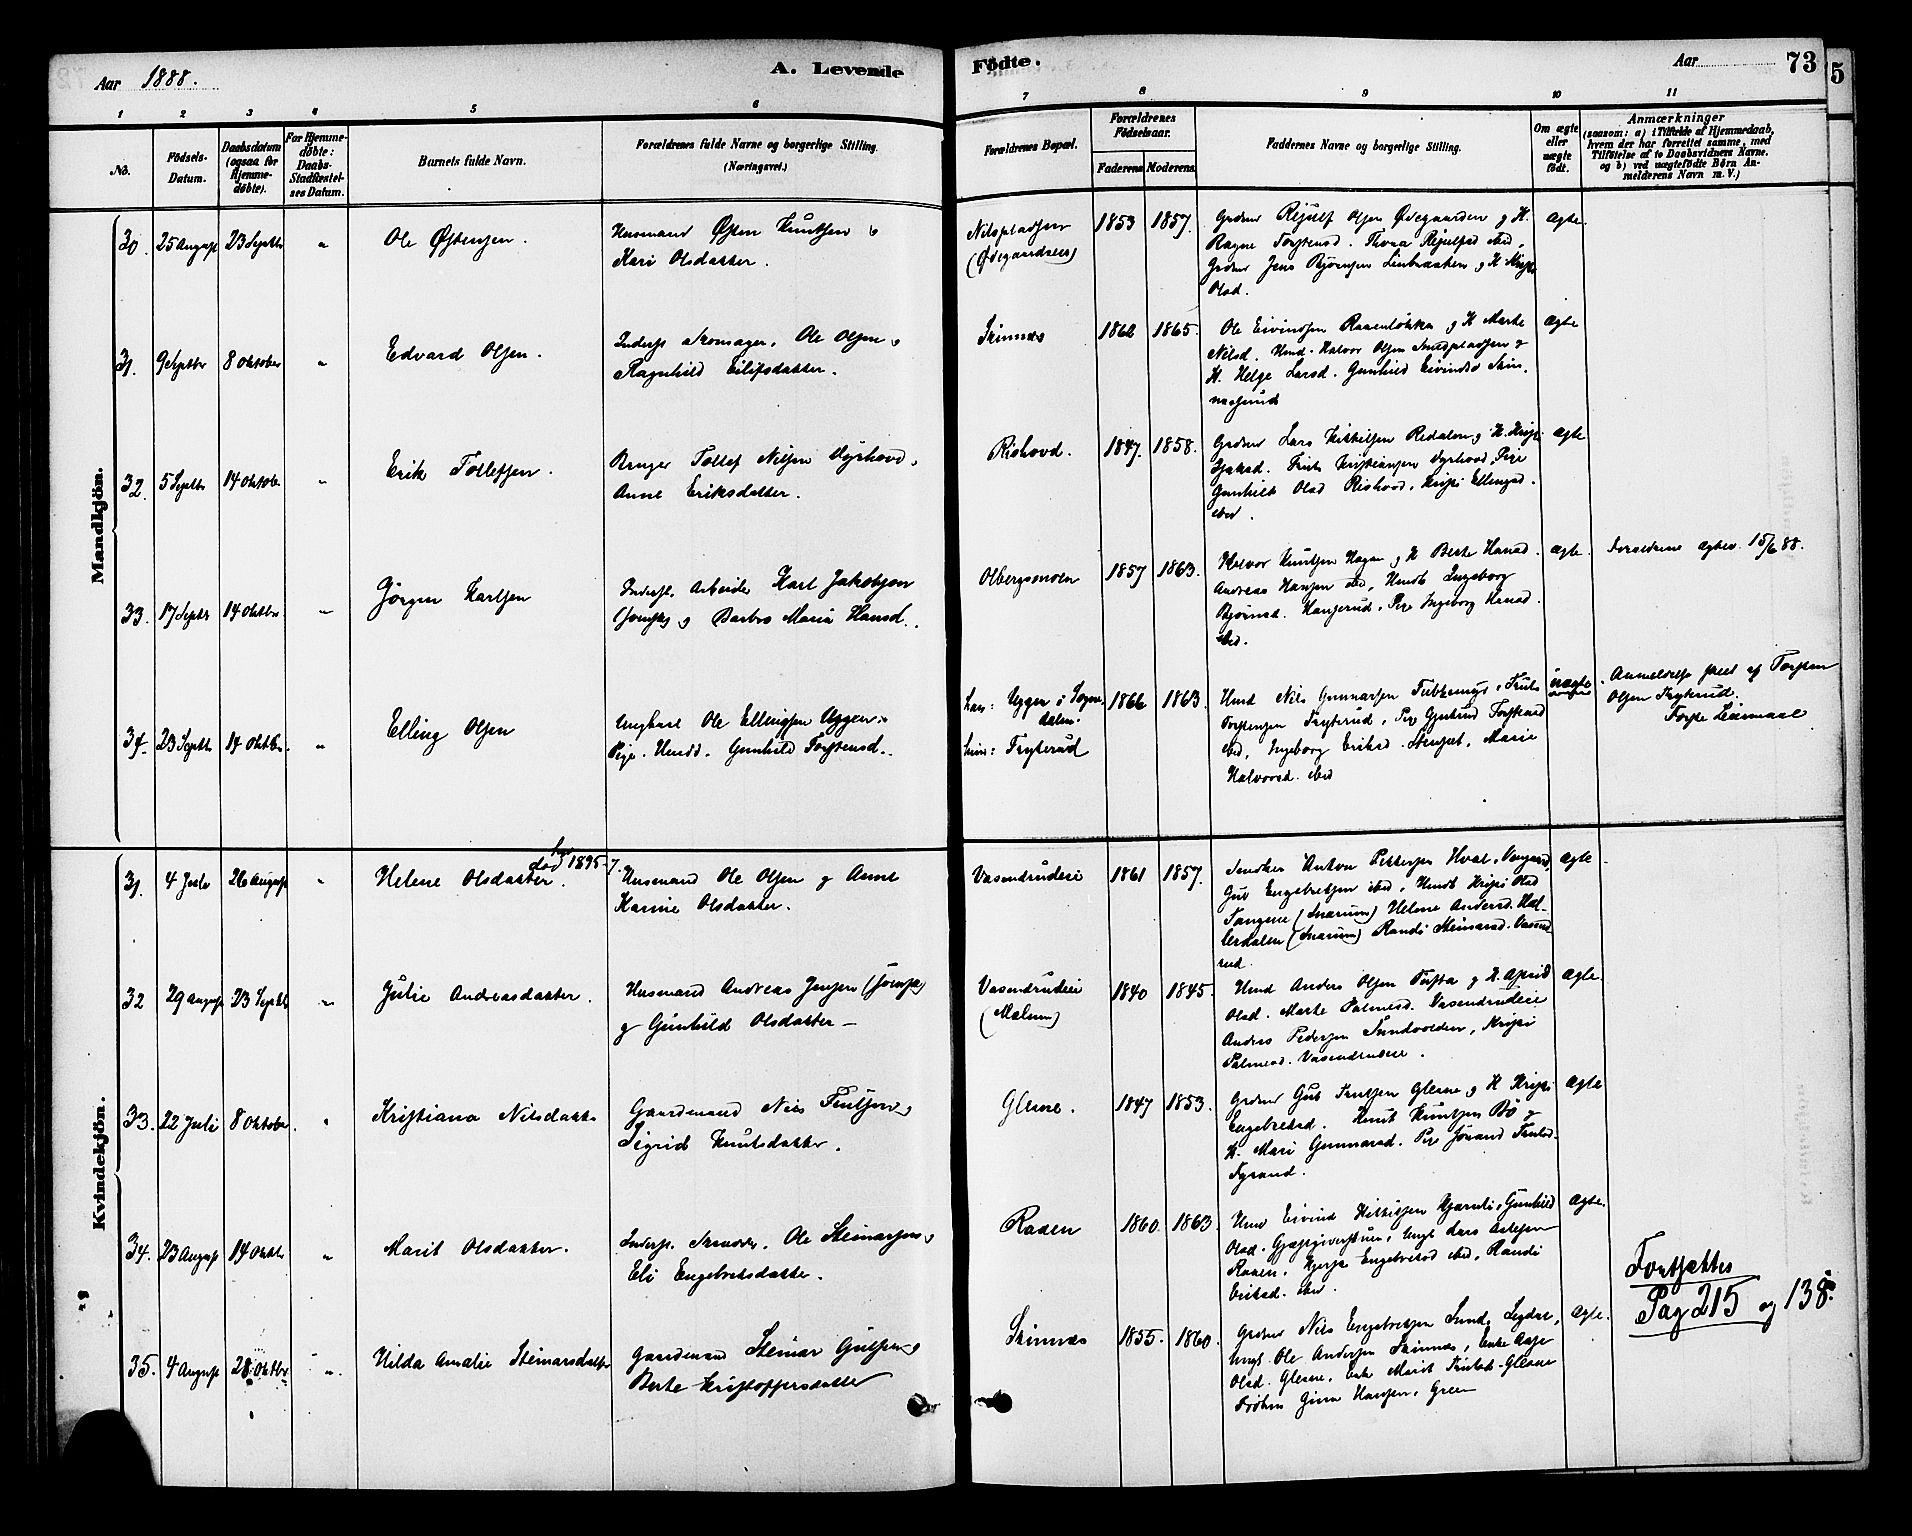 Aar 1888.
A. Levende
Fødte.
Aar
73
5
1
2
3
4
5
6
7
8
9
10
11
No.
Fødsels-
Datum.
Daabsdatum
(ogsaa for
Hjemme-
døbte).
For Hjemme-
døbte:
Daabs-
Stadfæstel-
ses Datum.
Barnets fulde Navn.
Forældrenes fulde Navne og borgerlige Stilling.
(Næringsvei.)
Forældrenes Bopæl.
Forældrenes
Fødselsaar.
Faderens
Moderens
Faddernes Navne og borgerlige Stilling.
Om ægte
eller
uægte
født.
Anmærkninger
(saasom: a) i Tilfælde af Hjemmedaab,
hvem der har forrettet samme, med
Tilføielse af to Daabsvidners Navne.
og b) ved uægtefødte Børn An-
melderens Navn m. V.)
Mandkjön.
30.
25 August
23 Septbr
"
Ole Østensen.
Husmand Østen Knutsen o
Kari Olsdatter.
Nilspladsen
(Ødegaardseie)
1853
1857.
Grdmd Reiulf Olsen Ødegaarden g H.
Ragne Torstensd. Thora Reiulfsd ibid,
Grdmd Jens Bjørnsen Linbraaten g H
Olsd.
Ægte
31.
9 Septbr
8 Oktober
"
Edvard Olsen.
Inderst Skomager. Ole Olsen o
Ragnhild Eilifsdatter.
Skinnæs
1862
1865.
Ole Eivindsen Raaenløkka g H Marte
Nilsd. Hmd. Halvor Olsen g
H. Helge Larsd. Gunhild Eivindsd Skin-
næsgrund
Ægte
32.
5 Septbr
14 Oktober
"
Erik Tollefsen.
Bruger Tollef Nilsen Dyrhovd o
Anne Eriksdatter.
Rishovd.
1847.
1858.
Grdmd Lars Kittilsen Redalen g H. Kristi
Kristiansen Dyrhovd. Pige
Gunhild Olsd Rishovd. Kristi Ellingsd.
ibid.
Ægte
33.
17 Septbr
14 Oktbr.
"
Jørgen Karlsen
Inderst. Arbeider Karl Jakobsen
g Barbro Maria Hansd.
Olbergsmoen
1857
1863.
Halvor Knutsen Hagan g H Berte Hansd.
Andreas Hansen ibid, Hmdk Ingeborg
Bjørnsd. Hansrud. Pige Ingeborg Hansd.
ibid.
Ægte.
Forældrene Ægtev. 15/6 88.
34.
23 Septbr
14 Oktbr.
"
Elling Olsen
Ungkarl Ole Ellingsen Uggen o
Pige. Hmdd. Gunhild Torstensd.
Hans: Uggen i Sogn-
dalen.
Hun: Fryterud
1866
1863.
Hmd Nils Gunnarsen
Torstensen Fryterud. Pige Gjertrud Torstensd
ibd, Ingeborg Eriksd. Marie
Halvorsd. ibid
Uægte
Anmeldelse skeet af Torsten
Olsen Fryterud.
Første Leiermaal
Kvindekjön.
31.
4 Juli
26 August
"
Helene Olsdatter.
død 1895-7.
Husmand Ole Olsen g Anne
Karine Olsdatter.
Vasendrudeie
1861
1857.
Snedker Anton Pettersen Hval,
Gul Engebretsen ibid, Hmdk Kristi Olsd
Tangene (Snarum) Helene Andersd. Hal-
lerdalen (Snarum) Randi Steinarsd. Vasend
rud.
Ægte
32
29 August
23 Septbr
"
Julie Andreasdatter.
Husmand Andreas Jensen
g Gunhild Olsdatter –
Vasendrudeie
(Malum)
1840
1845.
Hmd Anders Olsen Tufta g H. Astrid
Olsd. Marte Palmesd. Vasendrudeie
Anders Pedersen Sundvolden, Kristi
Palmesd. Vasendrudeie.
Ægte.
33.
22 Juli
8 Oktober.
"
Kristiana Nilsdatter
Gaardmand Nils Trulsen o
Sigrid Knutsdatter.
Glesne.
1847
1853.
Grdmd Gul Trulsen Glesne g H Kristi
Engebretsd. Knut Knutsen Bø g
H. Mari Gunnarsd. Pige Jørand Trulsd.
Fyrand.
Ægte
34.
23 August
14 Oktbr
"
Marit Olsdatter.
Inderst. Skrædder. Ole Steinarsen o
Eli Engebretsdatter.
Raaen
1860.
1863
Hmd Eivind Kittilsen Bjørnli, Gunhild
Olsd. Gjæstgiverstuen, Ungk Lars Asle­sen
Raaen, Kjersti Engebretsd ibid, Randi
Eriksd. ibid.
Ægte.
35.
4 August
28 Oktbr
"
Hilda Amalie Steinarsdatter
Gaardmand Steinar Gulsen o
Berte Kristoffersdatter
Skinnæs
1855.
1860.
Grdmd Nils Engebretsen
Ungk. Ole Andersen Skinnæs, Enke Aase
Olsd. Glesne, Enke Marit Trulsd. Glesne
Frøken Gina Hansen, Green
Ægte.
Fortsættes
Pag 215 og 138.